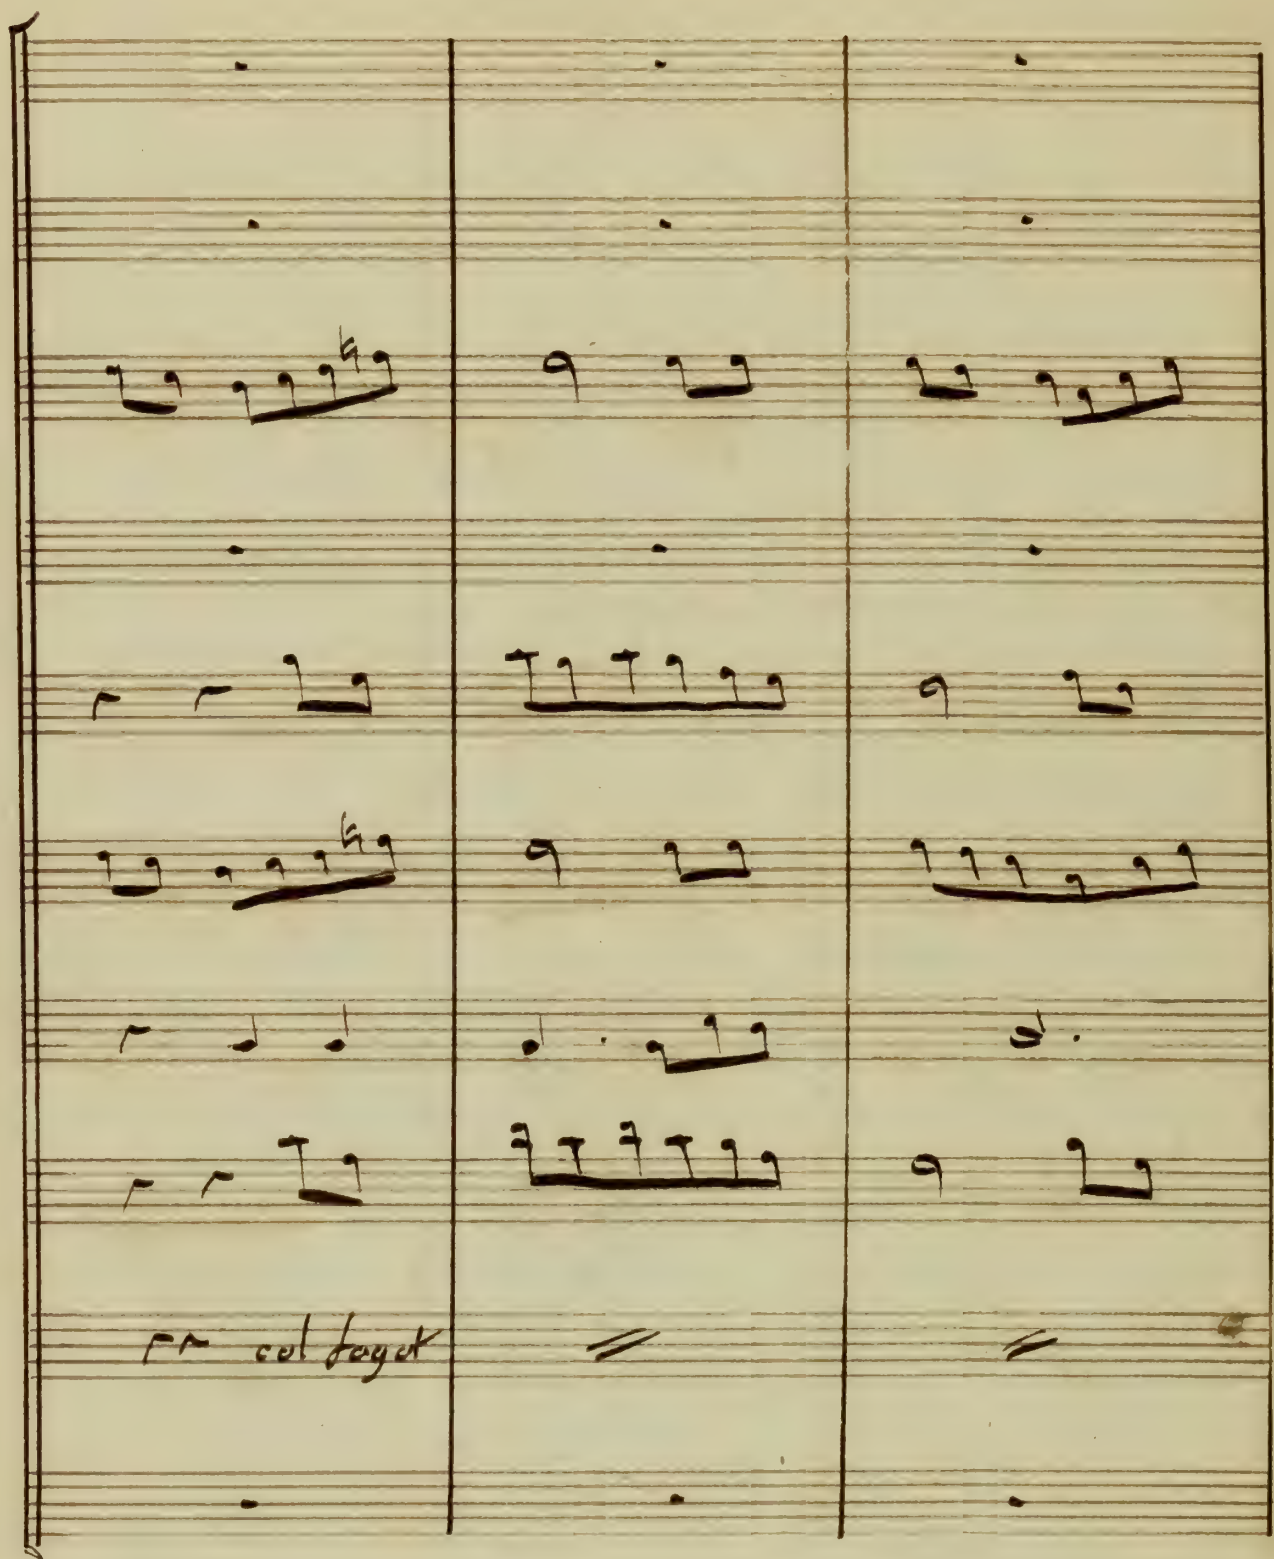 col fagot